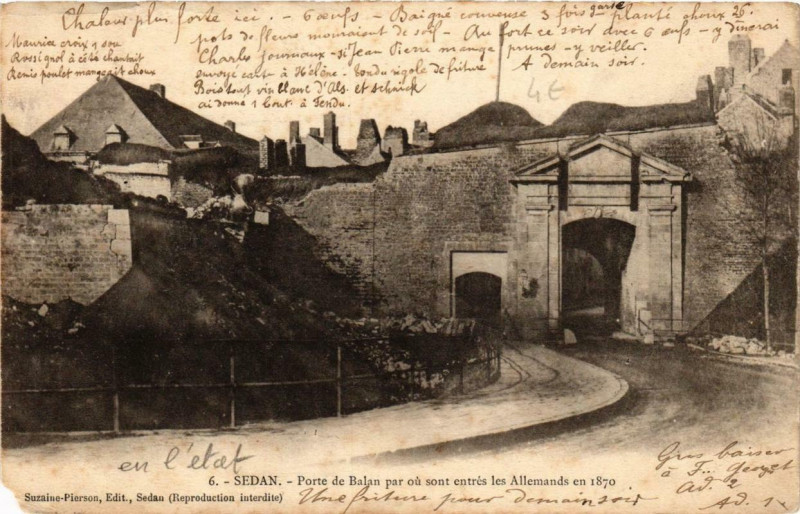 Chaleur plus forte ici. - 6 œufs. - Baigné couveuse 3 fois planté choux 26.
pots de fleurs mouraient de soif - Au fort ce soir avec 6 œufs - y dînerai
Charles Journaux - si Jean Pierre mange prunes - y veiller.
envoyé carte à Hélène - Tondu rigole de friture A demain soir.
Bois tout vin d'Als. et schnick
ai donné 1 Cout. à Tendu.
Maurice croix y sou
Rossignol à côté chantait
Denis poulet mangeait choux
4€
en l'état
6. - SEDAN. - Porte de Balan par où sont entrés les Allemands en 1870
Suzaine-Pierson, Edit., Sedan (Reproduction interdite)
Une friture pour demain soir
Gros baiser
à
Ad. 2
Ad. 1